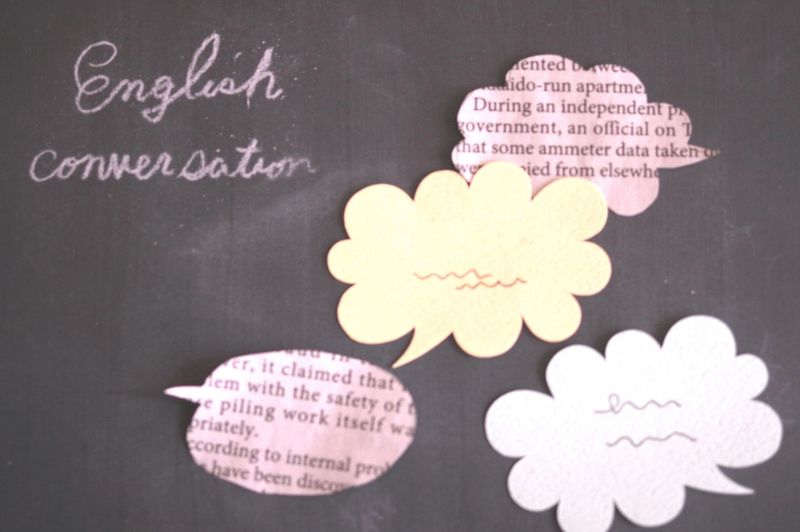 English
conversation
ented betwee
aido-run apartme
During an independent pr
government, an official on T
that some ammeter data taken
pied from elsewhe
er, it claimed that
lem with the safety of
e piling work itself wa
priately.
ccording to internal pro
have been disco